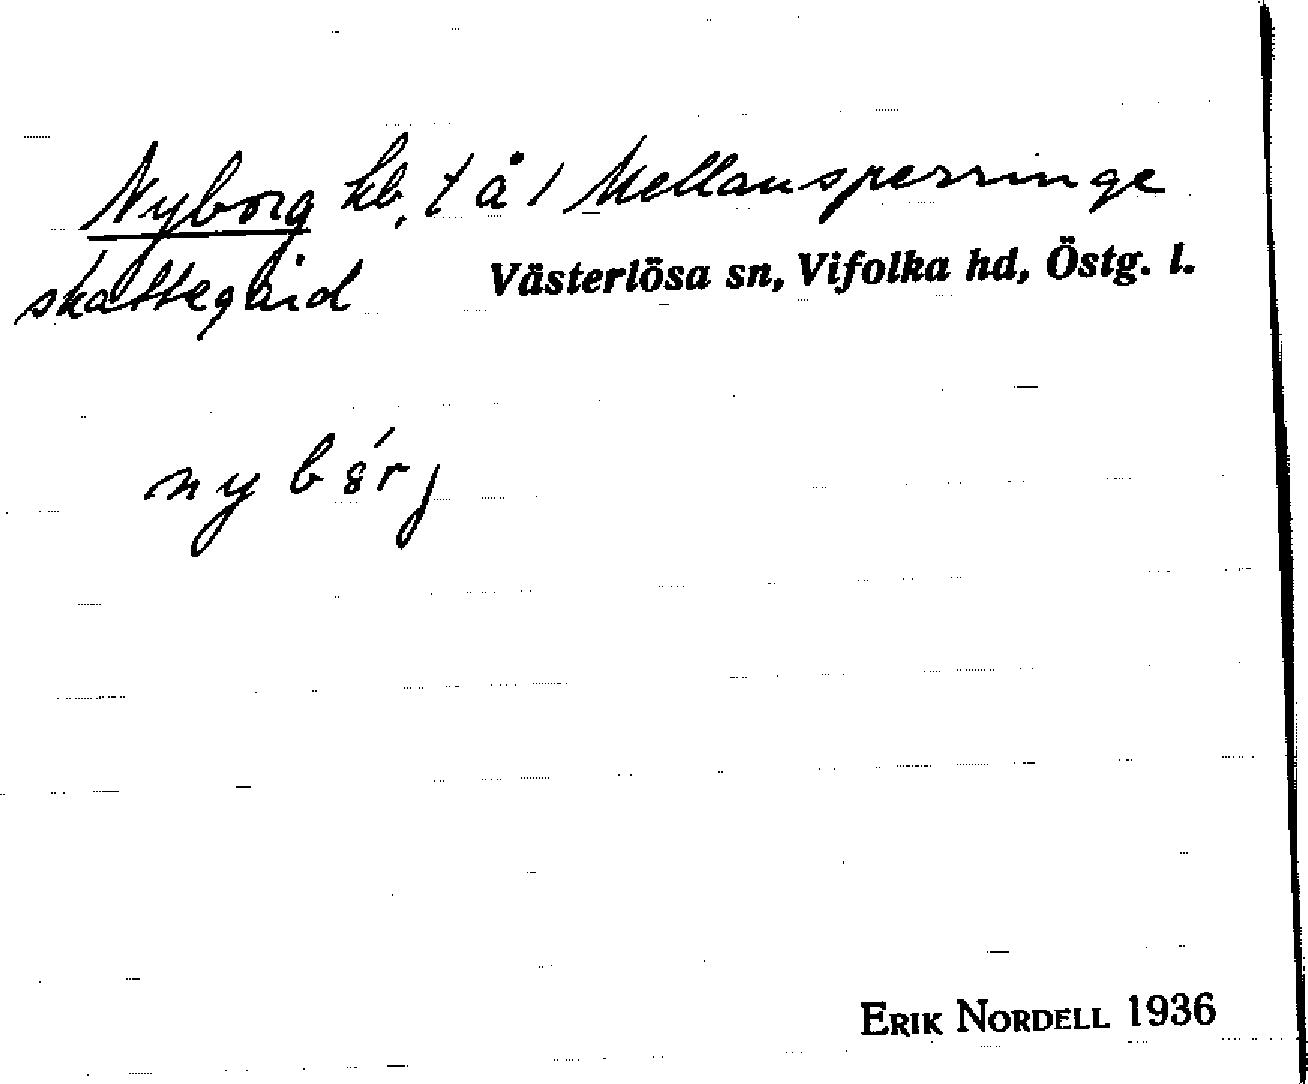 Nyborg hb, t å 1 Mellansperringe
skattegård Västerlösa sn, Vifolka hd, Östg. l.
ERIK NORDELL 1936